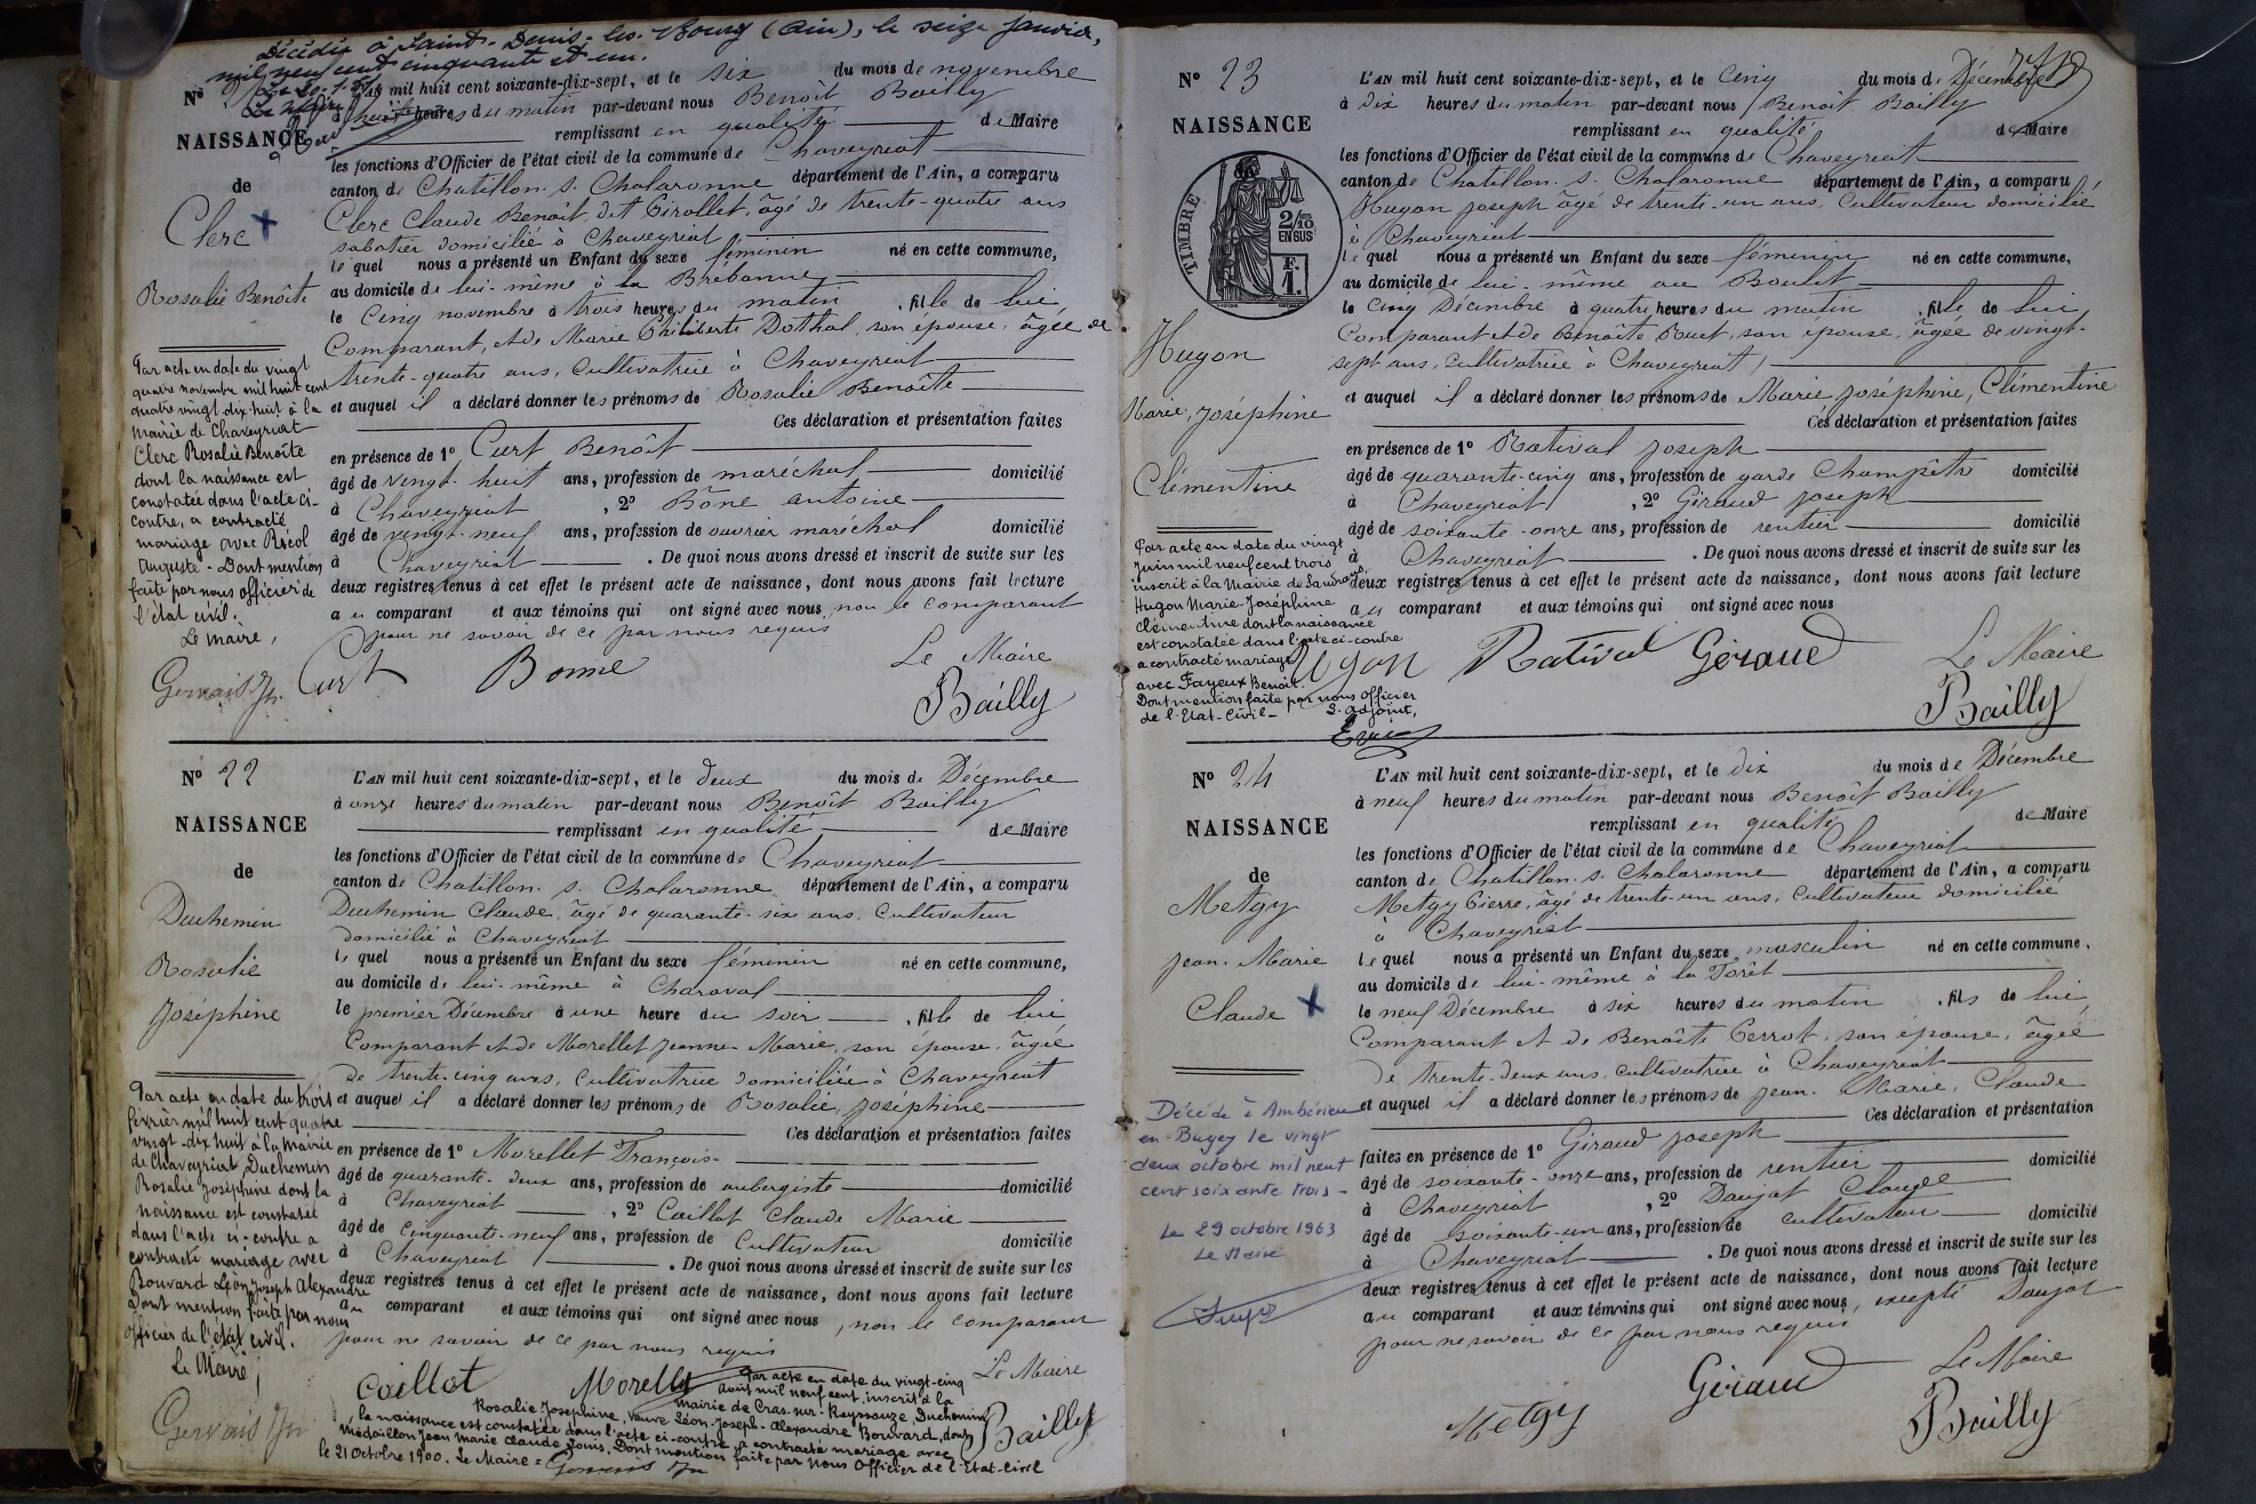 Décédée à Saint-Denis-les-Bourg (Ain), le seize janvier,
mil neuf cent cinquante et un.
Le Maire
N°
NAISSANCE
de
Clerc
Rosalie Benoîte
L'AN mil huit cent soixante-dix-sept, et le six du mois de novembre
à huit heures du matin par-devant nous Benoît Bailly
remplissant en qualité de Maire
les fonctions d'Officier de l'état civil de la commune de Chaveyriat
canton de Chatillon. s. Chalaronne département de l'Ain, a comparu
Clerc Claude Benoît, dit Girollet, âgé de trente-quatre ans
sabotier domicilié à Chaveyriat
lequel nous a présenté un Enfant du sexe féminin né en cette commune,
au domicile de lui-même à la Brébonne
le Cinq novembre à trois heures du matin , fille de lui
Comparant, et de Marie Philiberte Dothal, son épouse, âgée de
trente-quatre ans, Cultivatrice à Chaveyriat
et auquel il a déclaré donner les prénoms de Rosalie Benoîte
Ces déclaration et présentation faites
en présence de 1° Curt Benoît
âgé de vingt-huit ans, profession de maréchal domicilié
à Chaveyriat , 2° Bône antoine
âgé de vingt-neuf ans, profession de ouvrier maréchal domicilié
à Chaveyriat . De quoi nous avons dressé et inscrit de suite sur les
deux registres tenus à cet effet le présent acte de naissance, dont nous avons fait lecture
au comparant et aux témoins qui ont signé avec nous, non le comparant
pour ne savoir de ce par nous requis
Le Maire
Curt Bonne Bailly
Par acte en date du vingt
quatre novembre mil huit cent
quatre vingt dix huit à la
mairie de Chaveyriat
Clerc Rosalie Benoîte
dont la naissance est
constatée dans l'acte ci-
contre, a contracté
mariage avec Récol
Auguste - Dont mention
faite par nous officier de
l'état civil.
Le Maire,
Gervais Jn
N° 22
NAISSANCE
de
Duchemin
Rosalie
Joséphine
L'AN mil huit cent soixante-dix-sept, et le deux du mois de Décembre
à onze heures du matin par-devant nous Benoît Bailly
remplissant en qualité de Maire
les fonctions d'Officier de l'état civil de la commune de Chaveyriat
canton de Chatillon. s. Chalaronne département de l'Ain, a comparu
Duchemin Claude, âgé de quarante-six ans, Cultivateur
domicilié à Chaveyriat
lequel nous a présenté un Enfant du sexe féminin né en cette commune,
au domicile de lui-même à Charaval
le premier Décembre à une heure du soir , fille de lui
Comparant et de Morellet Jeanne-Marie, son épouse, âgée
de trente-cinq ans, Cultivatrice domiciliée à Chaveyriat
et auquel il a déclaré donner les prénoms de Rosalie, Joséphine
Ces déclaration et présentation faites
en présence de 1° Morellet François
âgé de quarante-deux ans, profession de aubergiste domicilié
à Chaveyriat , 2° Caillot Claude Marie
âgé de Cinquante-neuf ans, profession de Cultivateur domicilié
à Chaveyriat . De quoi nous avons dressé et inscrit de suite sur les
deux registres tenus à cet effet le présent acte de naissance, dont nous avons fait lecture
au comparant et aux témoins qui ont signé avec nous, non le comparant
pour ne savoir de ce par nous requis
Le Maire
Caillot Morellet Bailly
Par acte en date du trois
février mil huit cent quatre
vingt-dix huit à la Mairie
de Chaveyriat, Duchemin
Rosalie Joséphine dont la
naissance est constatée
dans l'acte ci-contre a
contracté mariage avec
Bouvard Léon Joseph Alexandre
Dont mention faite par nous
officier de l'état civil.
Le Maire,
Gervais Jn
Par acte en date du vingt-cinq
Août mil neuf cent, inscrit à la
mairie de Cras-sur-Reyssouze, Duchemin
Rosalie Josephine, veuve Léon-Joseph-Alexandre Bouvard, dont
la naissance est constatée dans l'acte ci-contre, a contracté mariage avec
Médaillon Jean Marie Claude Louis. Dont mention faite par nous Officier de l'Etat-Civil
le 21 Octobre 1900. Le Maire = Gervais Jn
N° 23
NAISSANCE
TIMBRE
2/10
EN SUS
F.
1.
Hugon
Marie, Joséphine
Clémentine
L'AN mil huit cent soixante-dix-sept, et le Cinq du mois de Décembre
à dix heures du matin par-devant nous Benoît Bailly
remplissant en qualité de Maire
les fonctions d'Officier de l'état civil de la commune de Chaveyriat
canton de Chatillon. s. Chalaronne département de l'Ain, a comparu
Hugon Joseph âgé de trente-un ans, Cultivateur domicilié
à Chaveyriat
lequel nous a présenté un Enfant du sexe féminin né en cette commune,
au domicile de lui-même au Boulet
le Cinq Décembre à quatre heures du matin , fille de lui
Comparant et de Benoîte Ruet, son épouse, âgée de vingt-
sept ans, cultivatrice à Chaveyriat
et auquel il a déclaré donner les prénoms de Marie, Joséphine, Clémentine
Ces déclaration et présentation faites
en présence de 1° Rativat Joseph
âgé de quarante-cinq ans, profession de garde Champêtre domicilié
à Chaveyriat , 2° Giraud Joseph
âgé de soixante-onze ans, profession de rentier domicilié
à Chaveyriat . De quoi nous avons dressé et inscrit de suite sur les
deux registres tenus à cet effet le présent acte de naissance, dont nous avons fait lecture
au comparant et aux témoins qui ont signé avec nous
Hugon Rativat Géraud Le Maire
Bailly
Par acte en date du vingt
Juin mil neuf cent trois
inscrit à la Mairie de
Hugon Marie-Joséphine
Clémentine dont la naissance
est constatée dans l'acte ci-contre
a contracté mariage
avec Fayeux Benoit.
Dont mention faite par nous Officier
de l'Etat-Civil - L'adjoint,
N° 24
NAISSANCE
de
Metgy
Jean-Marie
Claude
L'AN mil huit cent soixante-dix-sept, et le dix du mois de Décembre
à neuf heures du matin par-devant nous Benoît Bailly
remplissant en qualité de Maire
les fonctions d'Officier de l'état civil de la commune de Chaveyriat
canton de Chatillon. s. Chalaronne département de l'Ain, a comparu
Metgy Pierre, âgé de trente-un ans, Cultivateur domicilié
à Chaveyriat
lequel nous a présenté un Enfant du sexe masculin né en cette commune,
au domicile de lui-même à la Forêt
le neuf Décembre à six heures du matin , fils de lui
Comparant et de Benoîte Perrot, son épouse, âgée
de trente-deux ans, cultivatrice à Chaveyriat
et auquel il a déclaré donner les prénoms de Jean-Marie, Claude
Ces déclaration et présentation
faites en présence de 1° Giraud Joseph
âgé de soixante-onze ans, profession de rentier domicilié
à Chaveyriat , 2° Daujat Claude
âgé de soixante-un ans, profession de cultivateur domicilié
à Chaveyriat . De quoi nous avons dressé et inscrit de suite sur les
deux registres tenus à cet effet le présent acte de naissance, dont nous avons fait lecture
au comparant et aux témoins qui ont signé avec nous, excepté Daujat
pour ne savoir de ce par nous requis
Le Maire
Metgy Géraud Bailly
Décédé à Ambérieu
en-Bugey le vingt
deux octobre mil neuf
cent soixante trois -
Le 29 octobre 1963
Le Maire